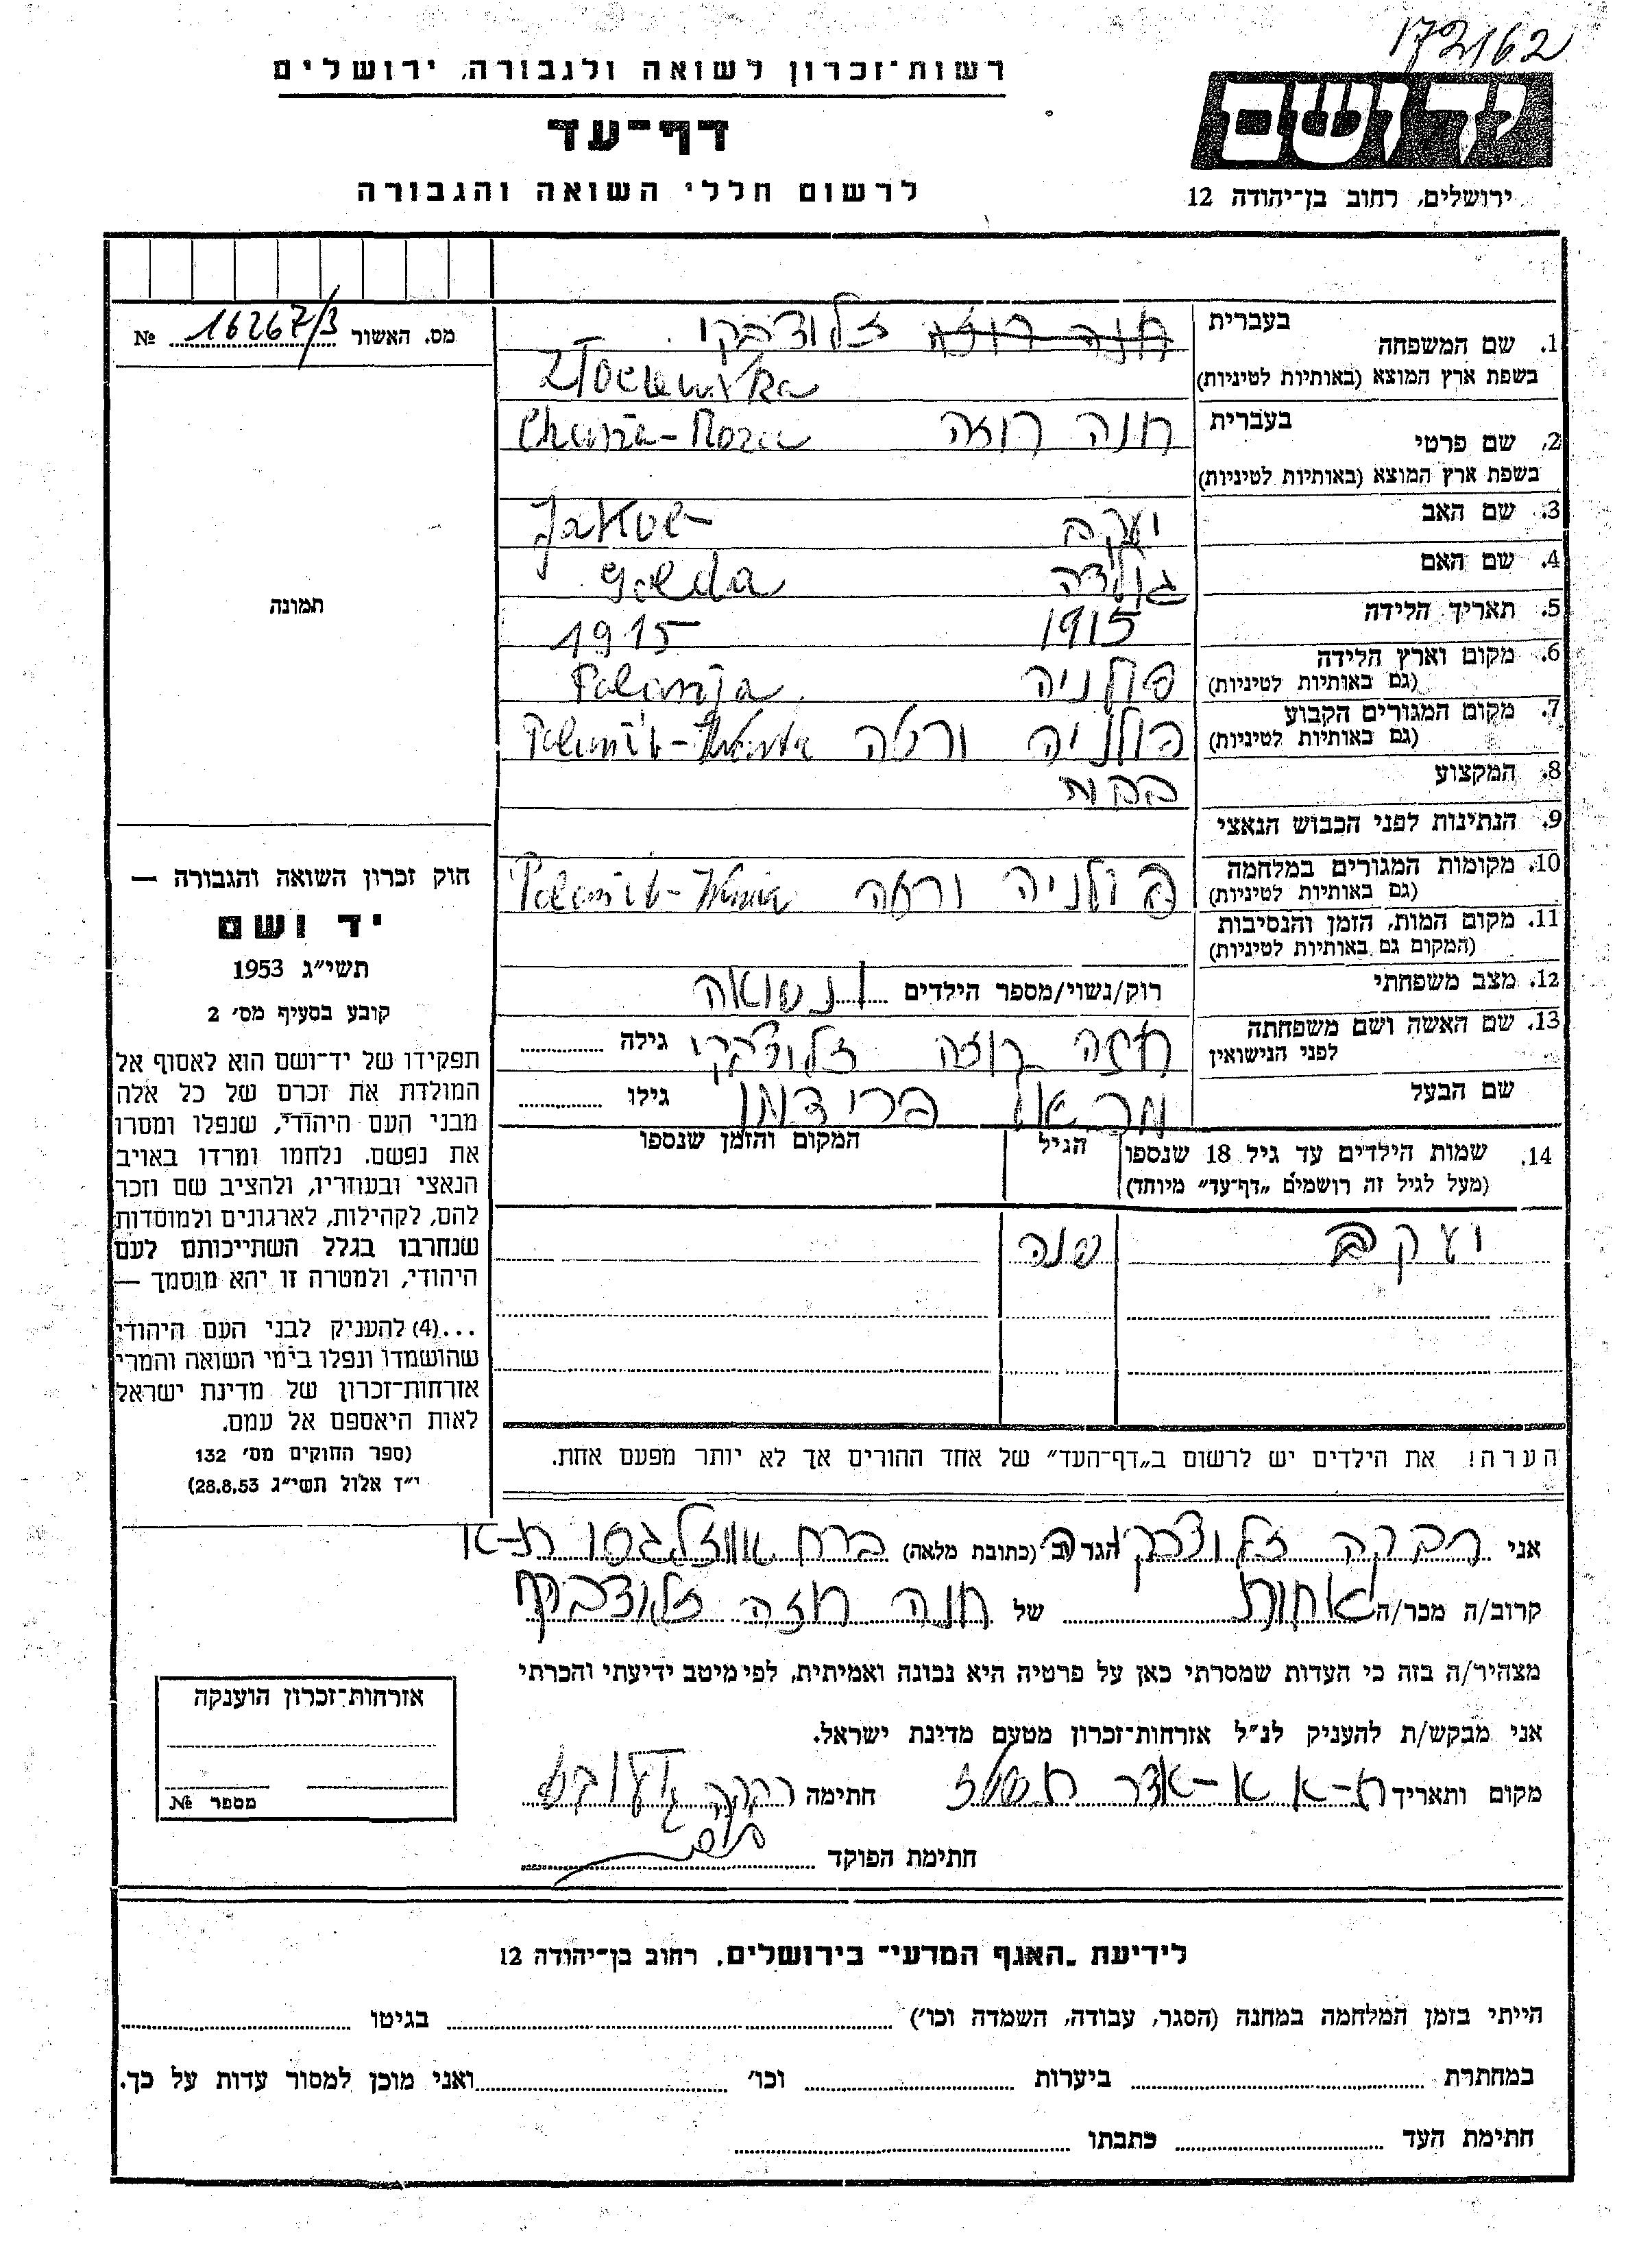 172162
רשות-זכרון לשואה ולגבורה, ירושלים
דף-עד
לרשום חללי השואה והגבורה
יד ושם
ירושלים, רחוב בן-יהודה 12
מס. האשור 16267/3 №
תמונה
חוק זכרון השואה והגבורה —
יד ושם
תשי״ג 1953
קובע בסעיף מס׳ 2
תפקידו של יד-ושם הוא לאסוף אל
המולדת את זכרם של כל אלה
מבני העם היהודי, שנפלו ומסרו
את נפשם, נלחמו ומרדו באויב
הנאצי ובעוזריו, ולהציב שם וזכר
להם, לקהילות, לארגונים ולמוסדות
שנחרבו בגלל השתייכותם לעם
היהודי, ולמטרה זו יהא מוסמך —
...(4) להעניק לבני העם היהודי
שהושמדו ונפלו בימי השואה והמרי
אזרחות-זכרון של מדינת ישראל
לאות היאספם אל עמם.
(ספר החוקים מס׳ 132
י״ז אלול תשי״ג 28.8.53)
1. שם המשפחה בעברית חנה רוזה זלוצבקי
בשפת ארץ המוצא (באותיות לטיניות)
2. שם פרטי בעברית חנה רוזה Chana-Roza
בשפת ארץ המוצא (באותיות לטיניות)
3. שם האב יעקב Jakob
4. שם האם גולדה Golda
5. תאריך הלידה 1915 1915
6. מקום וארץ הלידה פולניה Polanija
(גם באותיות לטיניות)
7. מקום המגורים הקבוע פולניה ורטה
(גם באותיות לטיניות)
8. המקצוע
9. הנתינות לפני הכבוש הנאצי
10. מקומות המגורים במלחמה פולניה
(גם באותיות לטיניות)
11. מקום המות, הזמן והנסיבות
(המקום גם באותיות לטיניות)
12. מצב משפחתי רוק/נשוי/מספר הילדים 1 נשואה
13. שם האשה ושם משפחתה חנה רוזה זלוצבקי גילה
לפני הנישואין
שם הבעל פרידמן גילו
14. שמות הילדים עד גיל 18 שנספו הגיל המקום והזמן שנספו
(מעל לגיל זה רושמים „דף-עד״ מיוחד)
יעקב שנה
הערה! את הילדים יש לרשום ב„דף-העד״ של אחד ההורים אך לא יותר מפעם אחת.
אני רבקה הגרה (כתובת מלאה) ת-א
קרוב/ה מכר/ה אחות של חנה רוזה זלוצבקי
מצהיר/ה בזה כי העדות שמסרתי כאן על פרטיה היא נכונה ואמיתית, לפי מיטב ידיעתי והכרתי
אני מבקש/ת להעניק לנ״ל אזרחות-זכרון מטעם מדינת ישראל.
מקום ותאריך ת-א א-אדר חתימה רבקה
חתימת הפוקד
אזרחות-זכרון הוענקה
מספר №
לידיעת „האגף המדעי״ בירושלים, רחוב בן-יהודה 12
הייתי בזמן המלחמה במחנה (הסגר, עבודה, השמדה וכו׳) בגיטו
במחתרת ביערות וכו׳ ואני מוכן למסור עדות על כך.
חתימת העד כתבתו